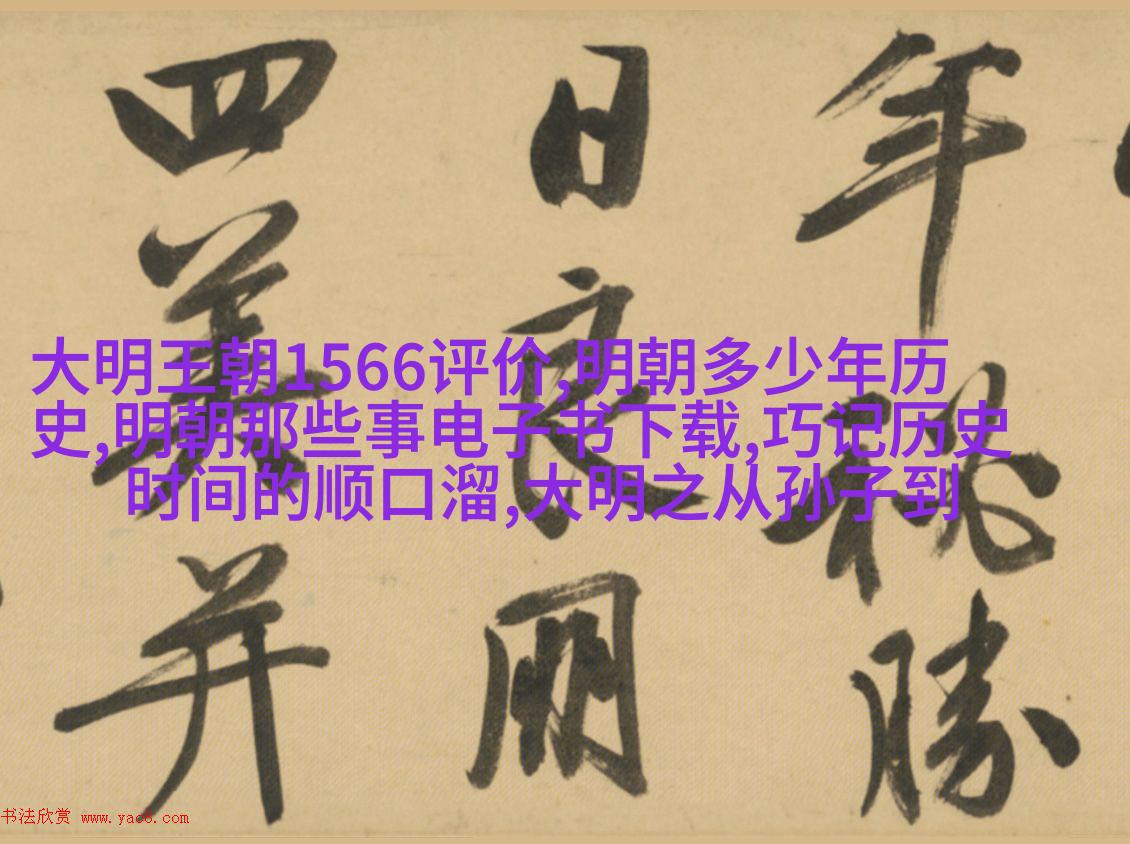 年勝
日良朋
四美并
大明王朝1566评价,明朝多少年历
史,明朝那些事电子书下载,巧记历史
时间的顺口溜,大明之从孙子到
书法欣赏 www.yac8.com